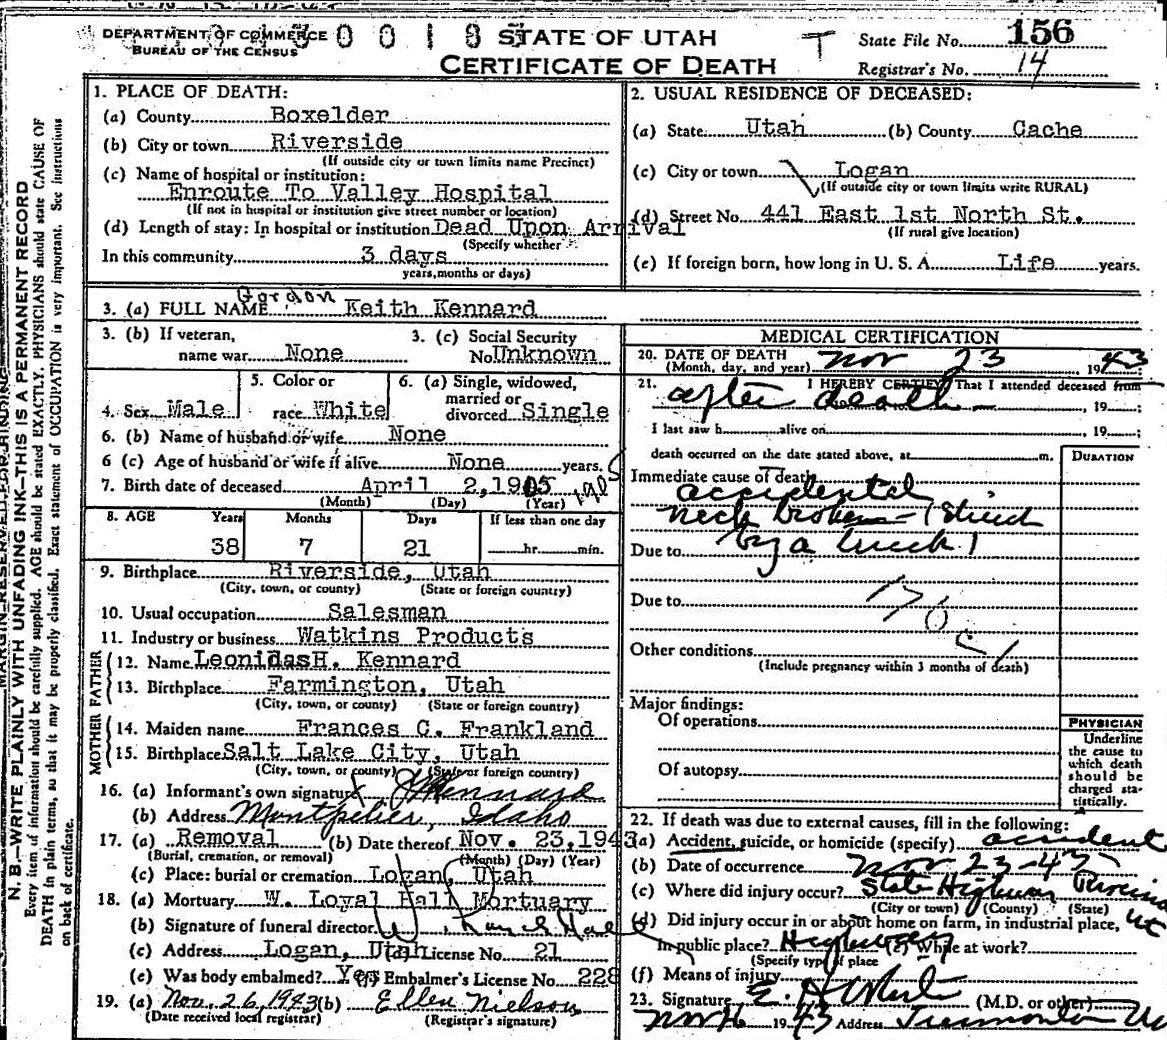 DEPARTMENT OF COMMERCE
BUREAU OF THE CENSUS
STATE OF UTAH
CERTIFICATE OF DEATH
T
State File No. 156
Registrar's No. 14
MARGIN RESERVED FOR BINDING
N. B.—WRITE PLAINLY WITH UNFADING INK—THIS IS A PERMANENT RECORD
Every item of information should be carefully supplied. AGE should be stated EXACTLY. PHYSICIANS should state CAUSE OF
DEATH in plain terms, so that it may be properly classified. Exact statement of OCCUPATION is very important. See instructions
on back of certificate.
1. PLACE OF DEATH:
(a) County Boxelder
(b) City or town Riverside
(If outside city or town limits name Precinct)
(c) Name of hospital or institution:
Enroute To Valley Hospital
(If not in hospital or institution give street number or location)
(d) Length of stay: In hospital or institution Dead Upon Arrival
(Specify whether
In this community 3 days
years, months or days)
2. USUAL RESIDENCE OF DECEASED:
(a) State Utah (b) County Cache
(c) City or town Logan
(If outside city or town limits write RURAL)
(d) Street No. 441 East 1st North St.
(If rural give location)
(e) If foreign born, how long in U. S. A. Life years.
3. (a) FULL NAME Gordon Keith Kennard
3. (b) If veteran,
name war None
3. (c) Social Security
No Unknown
4. Sex Male
5. Color or
race White
6. (a) Single, widowed,
married or
divorced Single
6. (b) Name of husband or wife None
6 (c) Age of husband or wife if alive None years.
7. Birth date of deceased April 2, 1905 1905
(Month) (Day) (Year)
8. AGE Years Months Days If less than one day
38 7 21 hr. min.
9. Birthplace Riverside, Utah
(City, town, or county) (State or foreign country)
10. Usual occupation Salesman
11. Industry or business Watkins Products
FATHER
12. Name Leonidas H. Kennard
13. Birthplace Farmington, Utah
(City, town, or county) (State or foreign country)
MOTHER
14. Maiden name Frances C. Frankland
15. Birthplace Salt Lake City, Utah
(City, town, or county) (State or foreign country)
16. (a) Informant's own signature Kennard
(b) Address Montpelier, Idaho
17. (a) Removal (b) Date thereof Nov. 23, 1943
(Burial, cremation, or removal) (Month) (Day) (Year)
(c) Place: burial or cremation Logan, Utah
18. (a) Mortuary W. Loyal Hall Mortuary
(b) Signature of funeral director
(c) Address Logan, Utah (d) License No. 21
(e) Was body embalmed? Yes (f) Embalmer's License No. 228
19. (a) Nov. 26, 1943 (b) Ellen Nielson
(Date received local registrar) (Registrar's signature)
MEDICAL CERTIFICATION
20. DATE OF DEATH
(Month, day, and year) Nov 23 1943
21. I HEREBY CERTIFY, That I attended deceased from
after death , 19 ;
I last saw h alive on , 19 ;
death occurred on the date stated above, at m.
DURATION
Immediate cause of death
accidental
neck broken - (struck
Due to by a truck)
Due to 170 c
Other conditions
(Include pregnancy within 3 months of death)
Major findings:
Of operations
Of autopsy
PHYSICIAN
Underline
the cause to
which death
should be
charged sta-
tistically.
22. If death was due to external causes, fill in the following:
(a) Accident, suicide, or homicide (specify) accident
(b) Date of occurrence Nov 23-43
(c) Where did injury occur? State Highway Riverside Ut
(City or town) (County) (State)
(d) Did injury occur in or about home on farm, in industrial place,
in public place? Highway (e) While at work?
(Specify type of place
(f) Means of injury
23. Signature E. (M.D. or other)
1943 Address Tremonton Ut